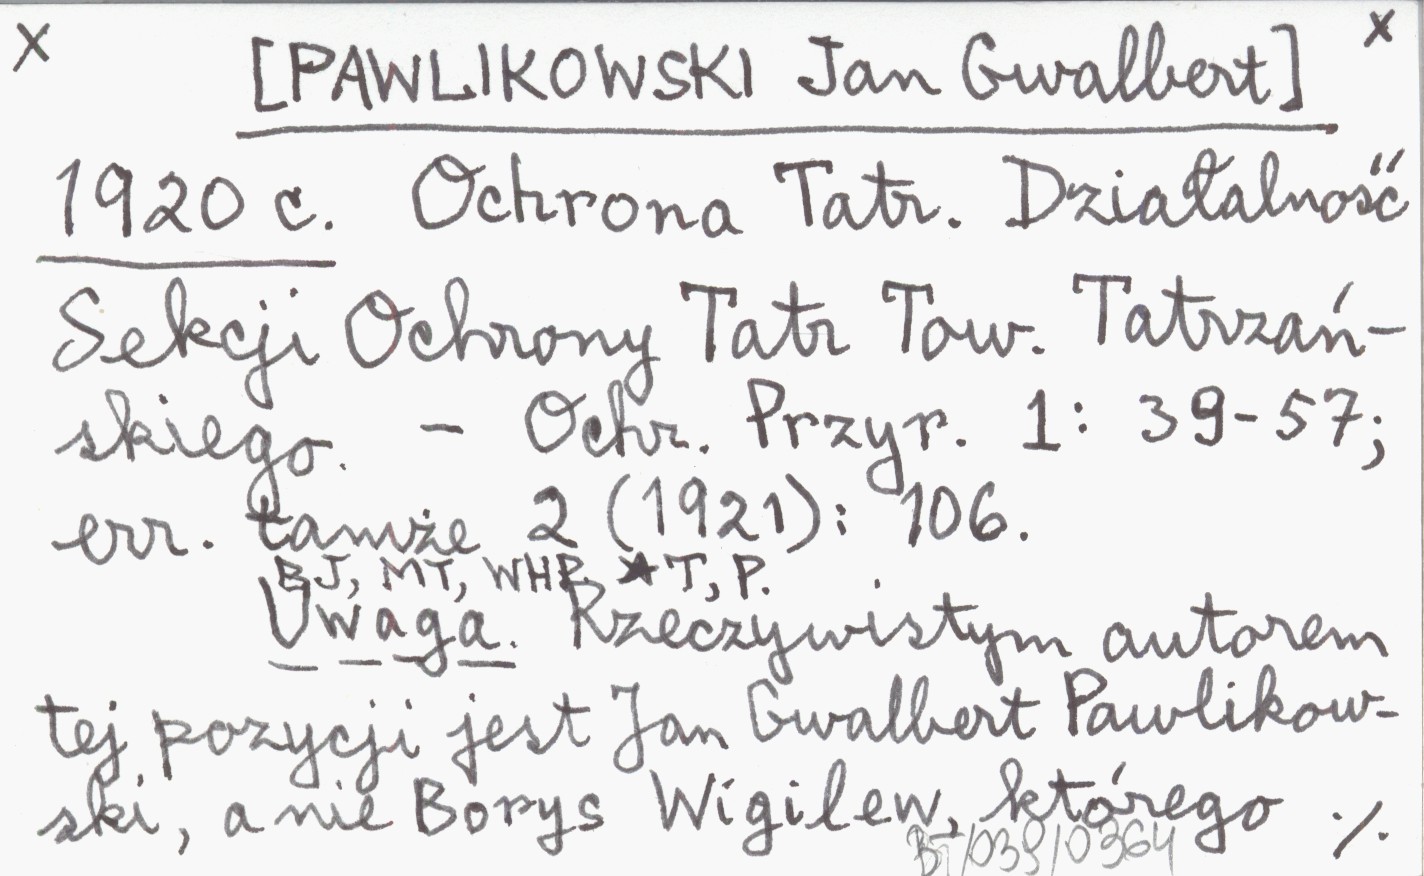 x [PAWLIKOWSKI Jan Gwalbert] x
1920 c. Ochrona Tatr. Działalność
Sekcji Ochrony Tatr Tow. Tatrzań-
skiego. - Ochr. Przyr. 1: 39-57;
err. tamże 2 (1921): 106.
BJ, MT, WHP, ★T, P.
Uwaga. Rzeczywistym autorem
tej pozycji jest Jan Gwalbert Pawlikow-
ski, a nie Borys Wigilew, którego ./.
BT/039/0364